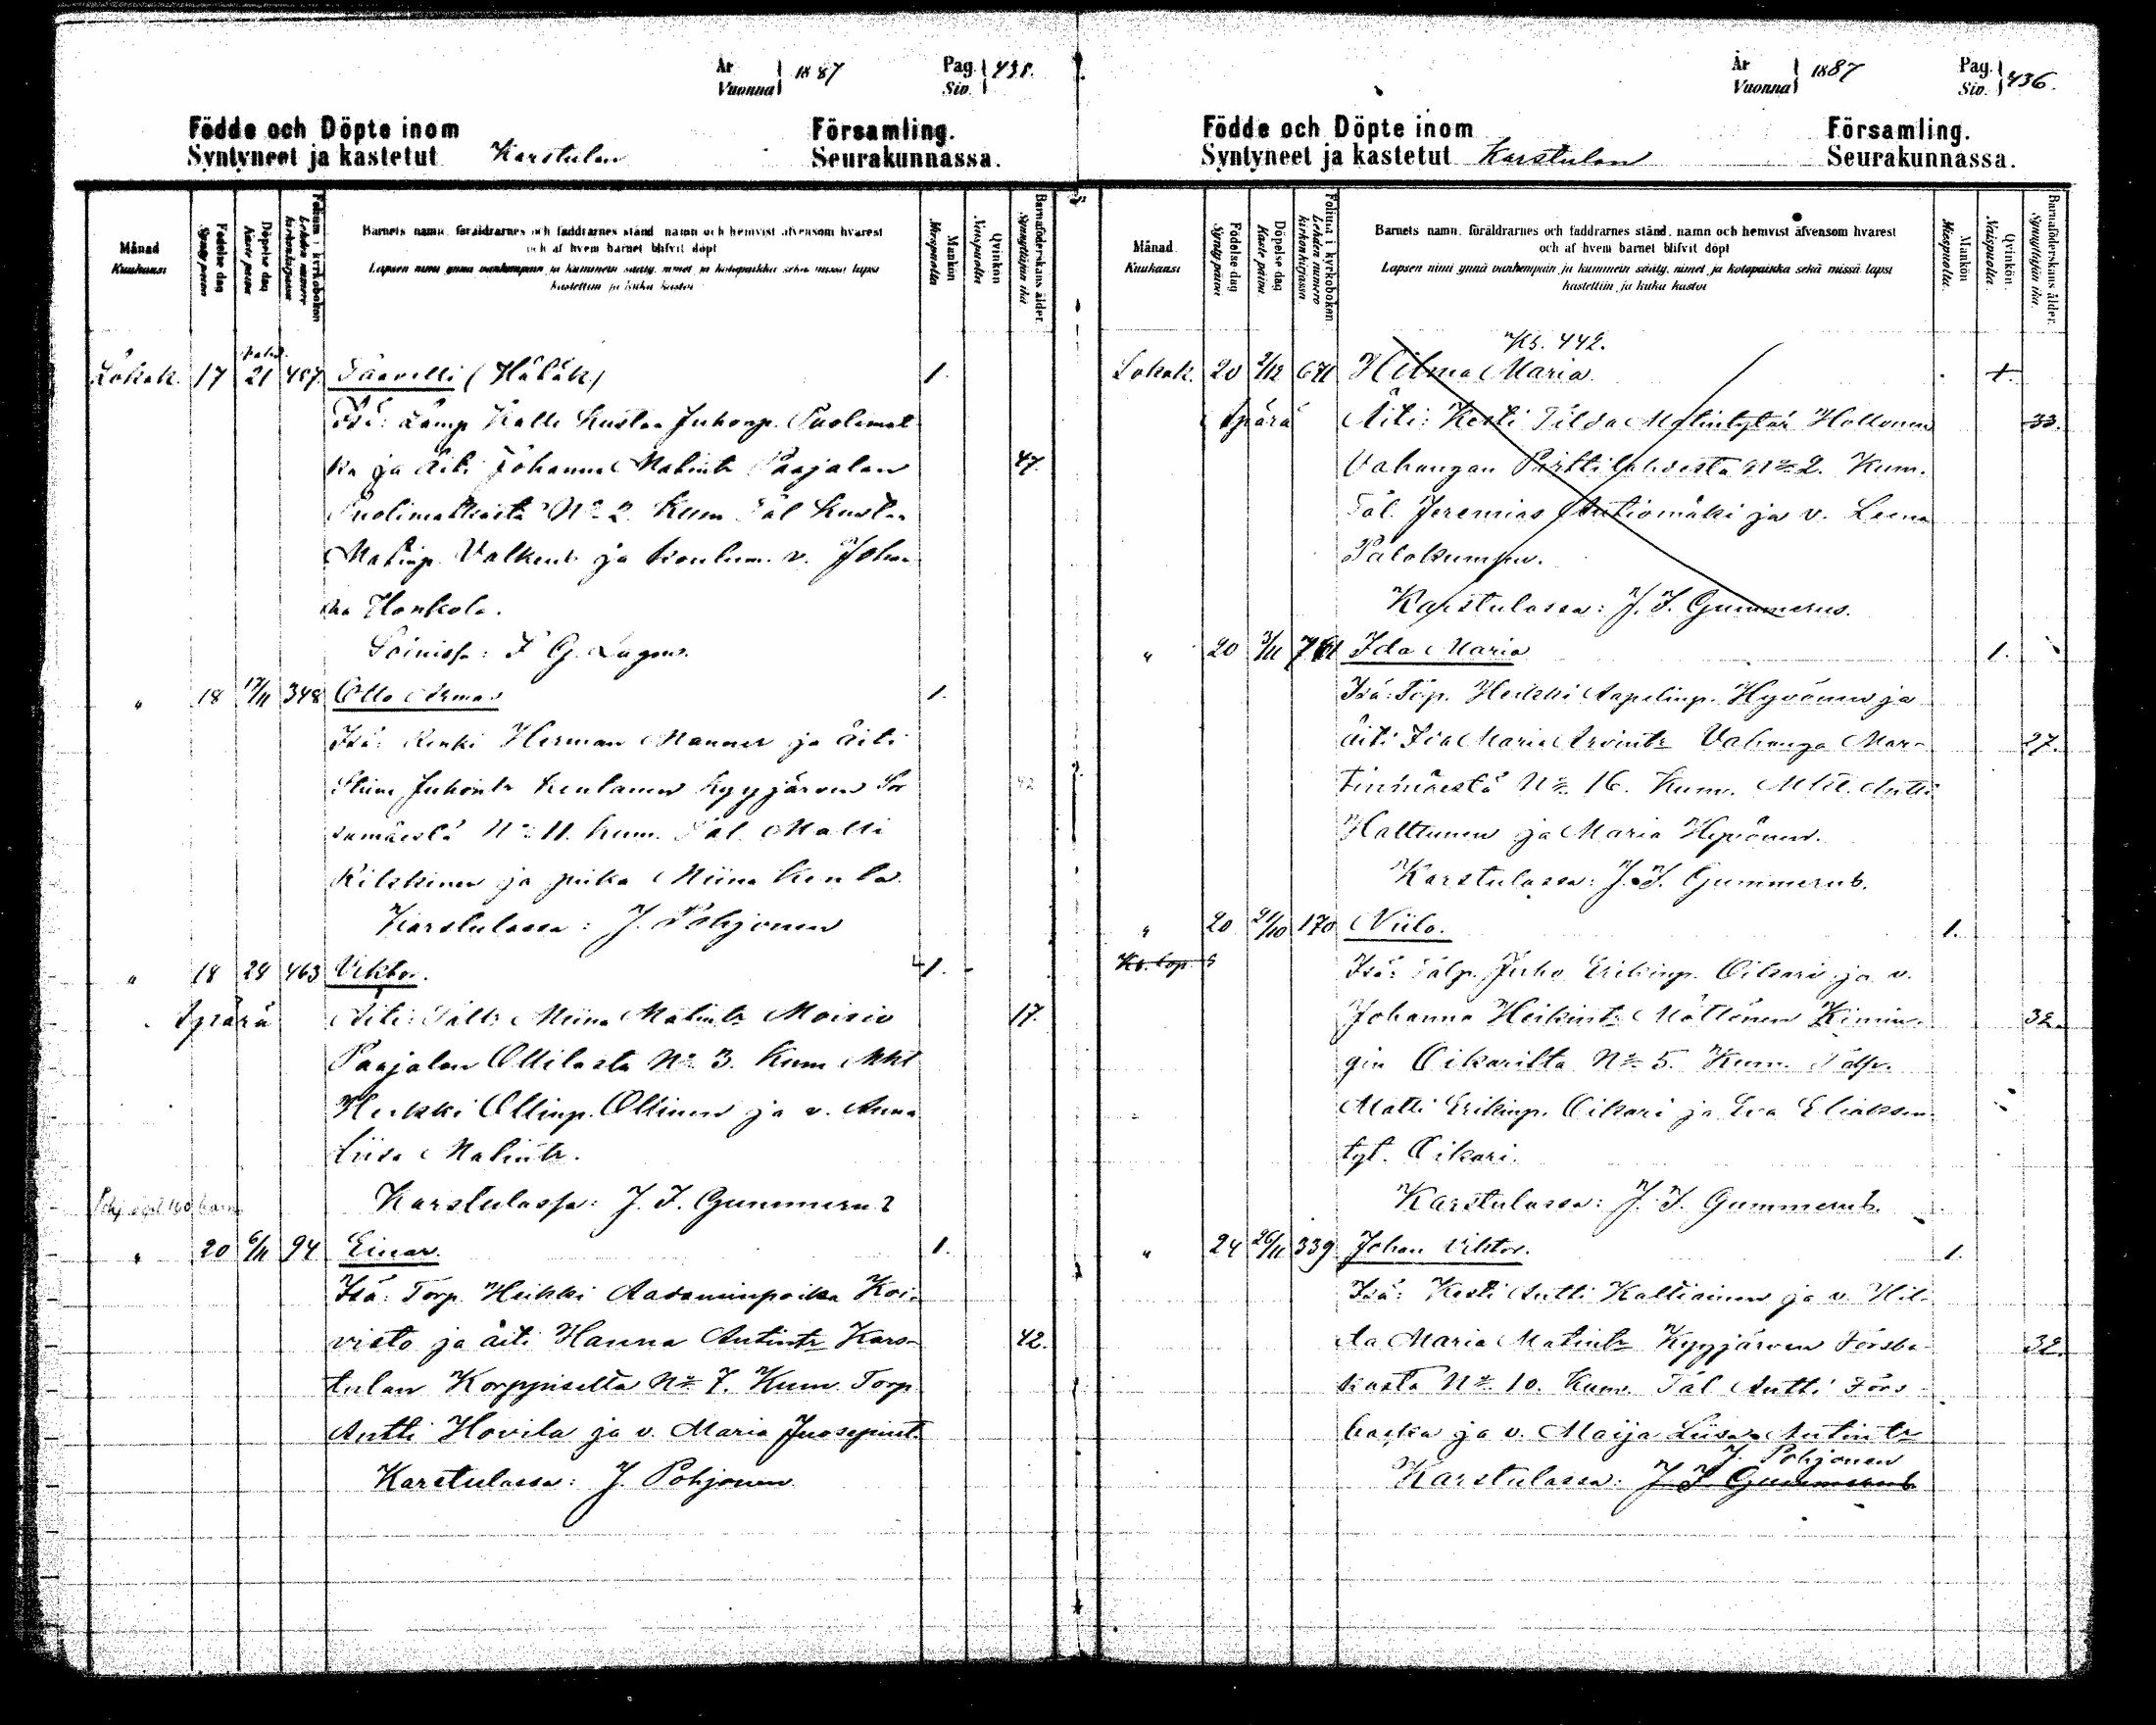 År
Vuonna
1887
Pag.
Siv.
435.
Födde och Döpte inom Församling.
Syntyneet ja kastetut Karstulan Seurakunnassa.
Månad
Kuukausi
Födelse dag
Synty päivä
Döpelse dag
Kaste päivä
Folium i kyrkoboken
Lehden numero kirkonkirjassa
Barnets namn, föräldrarnes och faddrarnes stånd, namn och hemvist äfvensom hvarest
och af hvem barnet blifvit döpt
Lapsen nimi ynnä vanhempain ja kummein sääty, nimet ja kotopaikka sekä missä lapsi
kastettiin ja kuka kastoi
Mankön
Miespuolta
Qvinkön
Naispuolta
Barnaföderskans ålder.
Synnyttäjän ikä
Lokak. 17 21 487 Taavetti (Hätäk) 1.
Isä: Lamp Kalle Kustaa Juhonp. Puolimat
ka ja Äiti Johanna Matintr Paajalan 47.
Puolimatkasta No 2. Kum Tal Kustaa
Matinp. Valkent ja koulum. v. Johan
na Honkola.
Soinissa: F G. Lagus.
" 18 13/11 348 Otto Armas 1.
Isä: Renki Herman Manner ja äiti
Stiina Juhontr Keulanen Kyyjärven Por
samäestä No 11. Kum. Tal. Matti
Kilskinen ja piika Miina Kenla.
Karstulassa: J. Pohjonen
" 18 24 463 Viktor. 1.
Äpärä Äiti: Taltr Miina Matintr Moisio 17.
Paajalan Ollilasta No 3. Kum Mkt
Heikki Ollinp. Ollinen ja v. Anna
Liisa Matintr.
Karstulassa: J. F. Gummerus
" 20 6/11 94 Einar. 1.
Isä: Torp. Heikki Aadaminpoika Koi-
visto ja äiti Hanna Antintr Kars- 42.
tulan Korppiselta No 7. Kum. Torp
Antti Hovila ja v. Maria Juosepint.
Karstulassa: J. Pohjonen
År
Vuonna
1887
Pag.
Siv.
436.
Födde och Döpte inom Församling.
Syntyneet ja kastetut Karstulan Seurakunnassa.
Månad
Kuukausi
Födelse dag
Synty päivä
Döpelse dag
Kaste päivä
Folium i kyrkoboken
Lehden numero kirkonkirjassa
Barnets namn, föräldrarnes och faddrarnes stånd, namn och hemvist äfvensom hvarest
och af hvem barnet blifvit döpt
Lapsen nimi ynnä vanhempain ja kummein sääty, nimet ja kotopaikka sekä missä lapsi
kastettiin ja kuka kastoi
Mankön
Miespuolta.
Qvinkön.
Naispuolta.
Barnaföderskans ålder.
Synnyttäjän ikä.
Ks. 442.
Lokak. 20 2/12 671 Hilma Maria. 1.
Äpärä Äiti: Kesti Tilda Matintytär Hollonen 33.
Vahangan Pirttilahdesta No 2. Kum.
Tal. Jeremias Autiomäki ja v. Leena
Palokumpu.
Karstulassa: J. F. Gummerus.
" 20 3/11 761 Ida Maria 1.
Isä: Töp. Heikki Aapelinp. Hyvönen ja
äiti Fia Maria Arvintr Vahanga Mar- 27.
tinmäestä No 16. Kum. Mkt. Antti
Halttunen ja Maria Hyvönen.
Karstulassa: J. F. Gummerus.
" 20 21/10 170 Niilo. 1.
Kb. kop. Isä: Talp. Juho Erikinp. Oikari ja v.
Johanna Heikintr Möttönen Kimin- 32.
gin Oikarilta No 5. Kum. Talp.
Matti Erikinp. Oikari ja Eva Eliaksen
tyt. Oikari.
Karstulassa: J. F. Gummerus.
" 24 26/11 339 Johan Viktor. 1.
Isä: Kesti Antti Kaltiainen ja v. Hil-
da Maria Matintr Kyyjärven Försba- 32.
kasta No 10. Kum. Tal Antti Förs-
backa ja v. Maija Liisa Antintr
J. Pohjonen
Karstulassa: J F Gummerus